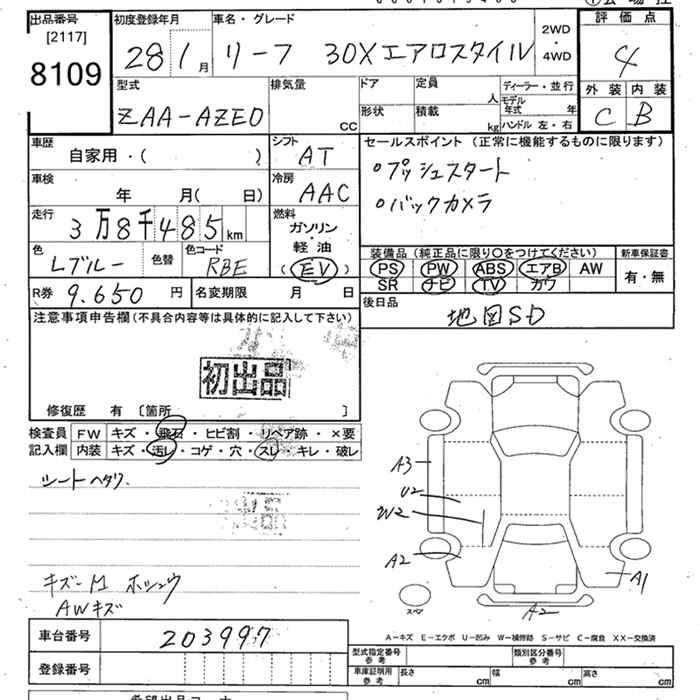 出品番号
[2117]
8109
初度登録年月
28 1 月
車名・グレード
リーフ 30Xエアロスタイル
2WD
・
4WD
評価点
4
外装 内装
C B
型式
ZAA-AZE0
排気量
CC
ドア
形状
定員
人
積載
kg
ディーラー・並行
モデル年式 年
ハンドル 左・右
車歴
自家用・( )
シフト
AT
車検
年 月( 日)
冷房
AAC
走行
3万8千485 km
燃料
ガソリン
・
軽油
(EV)
色
Lブルー
色替
色コード
RBE
R券 9.650 円
名変期限 月 日
セールスポイント (正常に機能するものに限ります)
○プッシュスタート
○バックカメラ
装備品 (純正品に限り○をつけてください)
PS PW ABS エアB AW
SR ナビ TV カワ
新車保証書
有・無
後日品
地図SD
注意事項申告欄(不具合内容等は具体的に記入して下さい)
初出品
修復歴 有 [箇所 ]
検査員
記入欄
FW キズ・飛石・ヒビ割・リペア跡・×要
内装 キズ・汚レ・コゲ・穴・スレ・キレ・破レ
シートヘタリ
キズーM ホシュウ
AWキズ
A3
U2
W2
A2
A1
A2
スペア
A-キズ E-エクボ U-凹み W-補修跡 S-サビ C-腐食 XX-交換済
車台番号 203997
登録番号
型式指定番号
参考
類別区分番号
参考
車庫証明用
参考
長さ cm
幅 cm
高さ cm